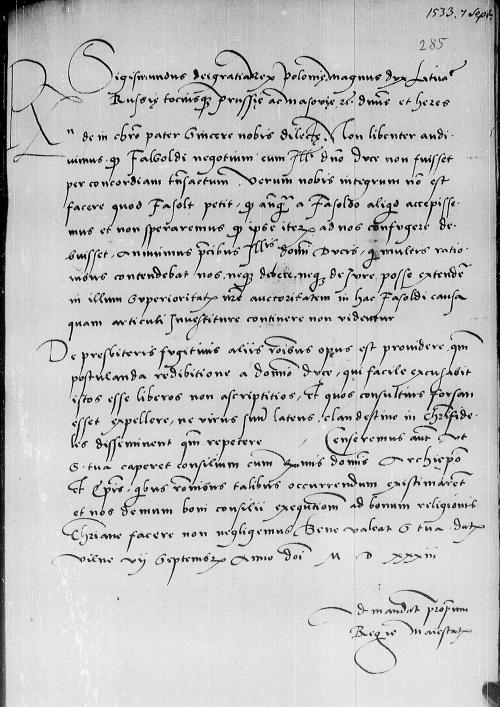 1533. 7 Sept.
285
Sigismundus dei gratia Rex Polonie, magnus dux Litua
Russie totiusq prussie ac masovie etc. dnus et heres
Rn de in chro pater sincere nobis dilecte. Non libenter audi
uimus, q Fasoldi negotium cum Ill dno duce non fuisset
per concordiam tnsactum. Verum nobis integrum no est
facere quod Fasolt petit, q a Fasoldo aliqd accepisse
mus et non speraremus q ipse iterx ad nos confugere de
buisset, Annuimus pcibus Illris domi Ducis, q multis ratio
nibus contendebat nos, neq decere, neq de jure posse extende
in illum superioritatx nre auctoritatem in hac Fasoldi causa
quam articuli Investiture continere non videntur
De presbiteris fugitiuis aliis roibus opus est providere, qm
postulanda redibitione a domno duce, qui facile excusabit
istos esse liberos non ascriptitios, Et quos consultius forsan
esset expellere, ne virus suu latens, clandestino in Chri fide
les disseminent qm repetere Censeremus aut Vt
S. tua caperet consilium cum Rmis domis Archiepo
Et Epis, qbus romibus talibus occurrendum existimaret
et nos demum boni consilii exequtiom ad bonum religionis
Chriane facere non negligemus, Bene valeat S tua datx
Vilne vii Septembrx Anno doi M D XXXiii
Ad mandat propium
Regie maiestatx